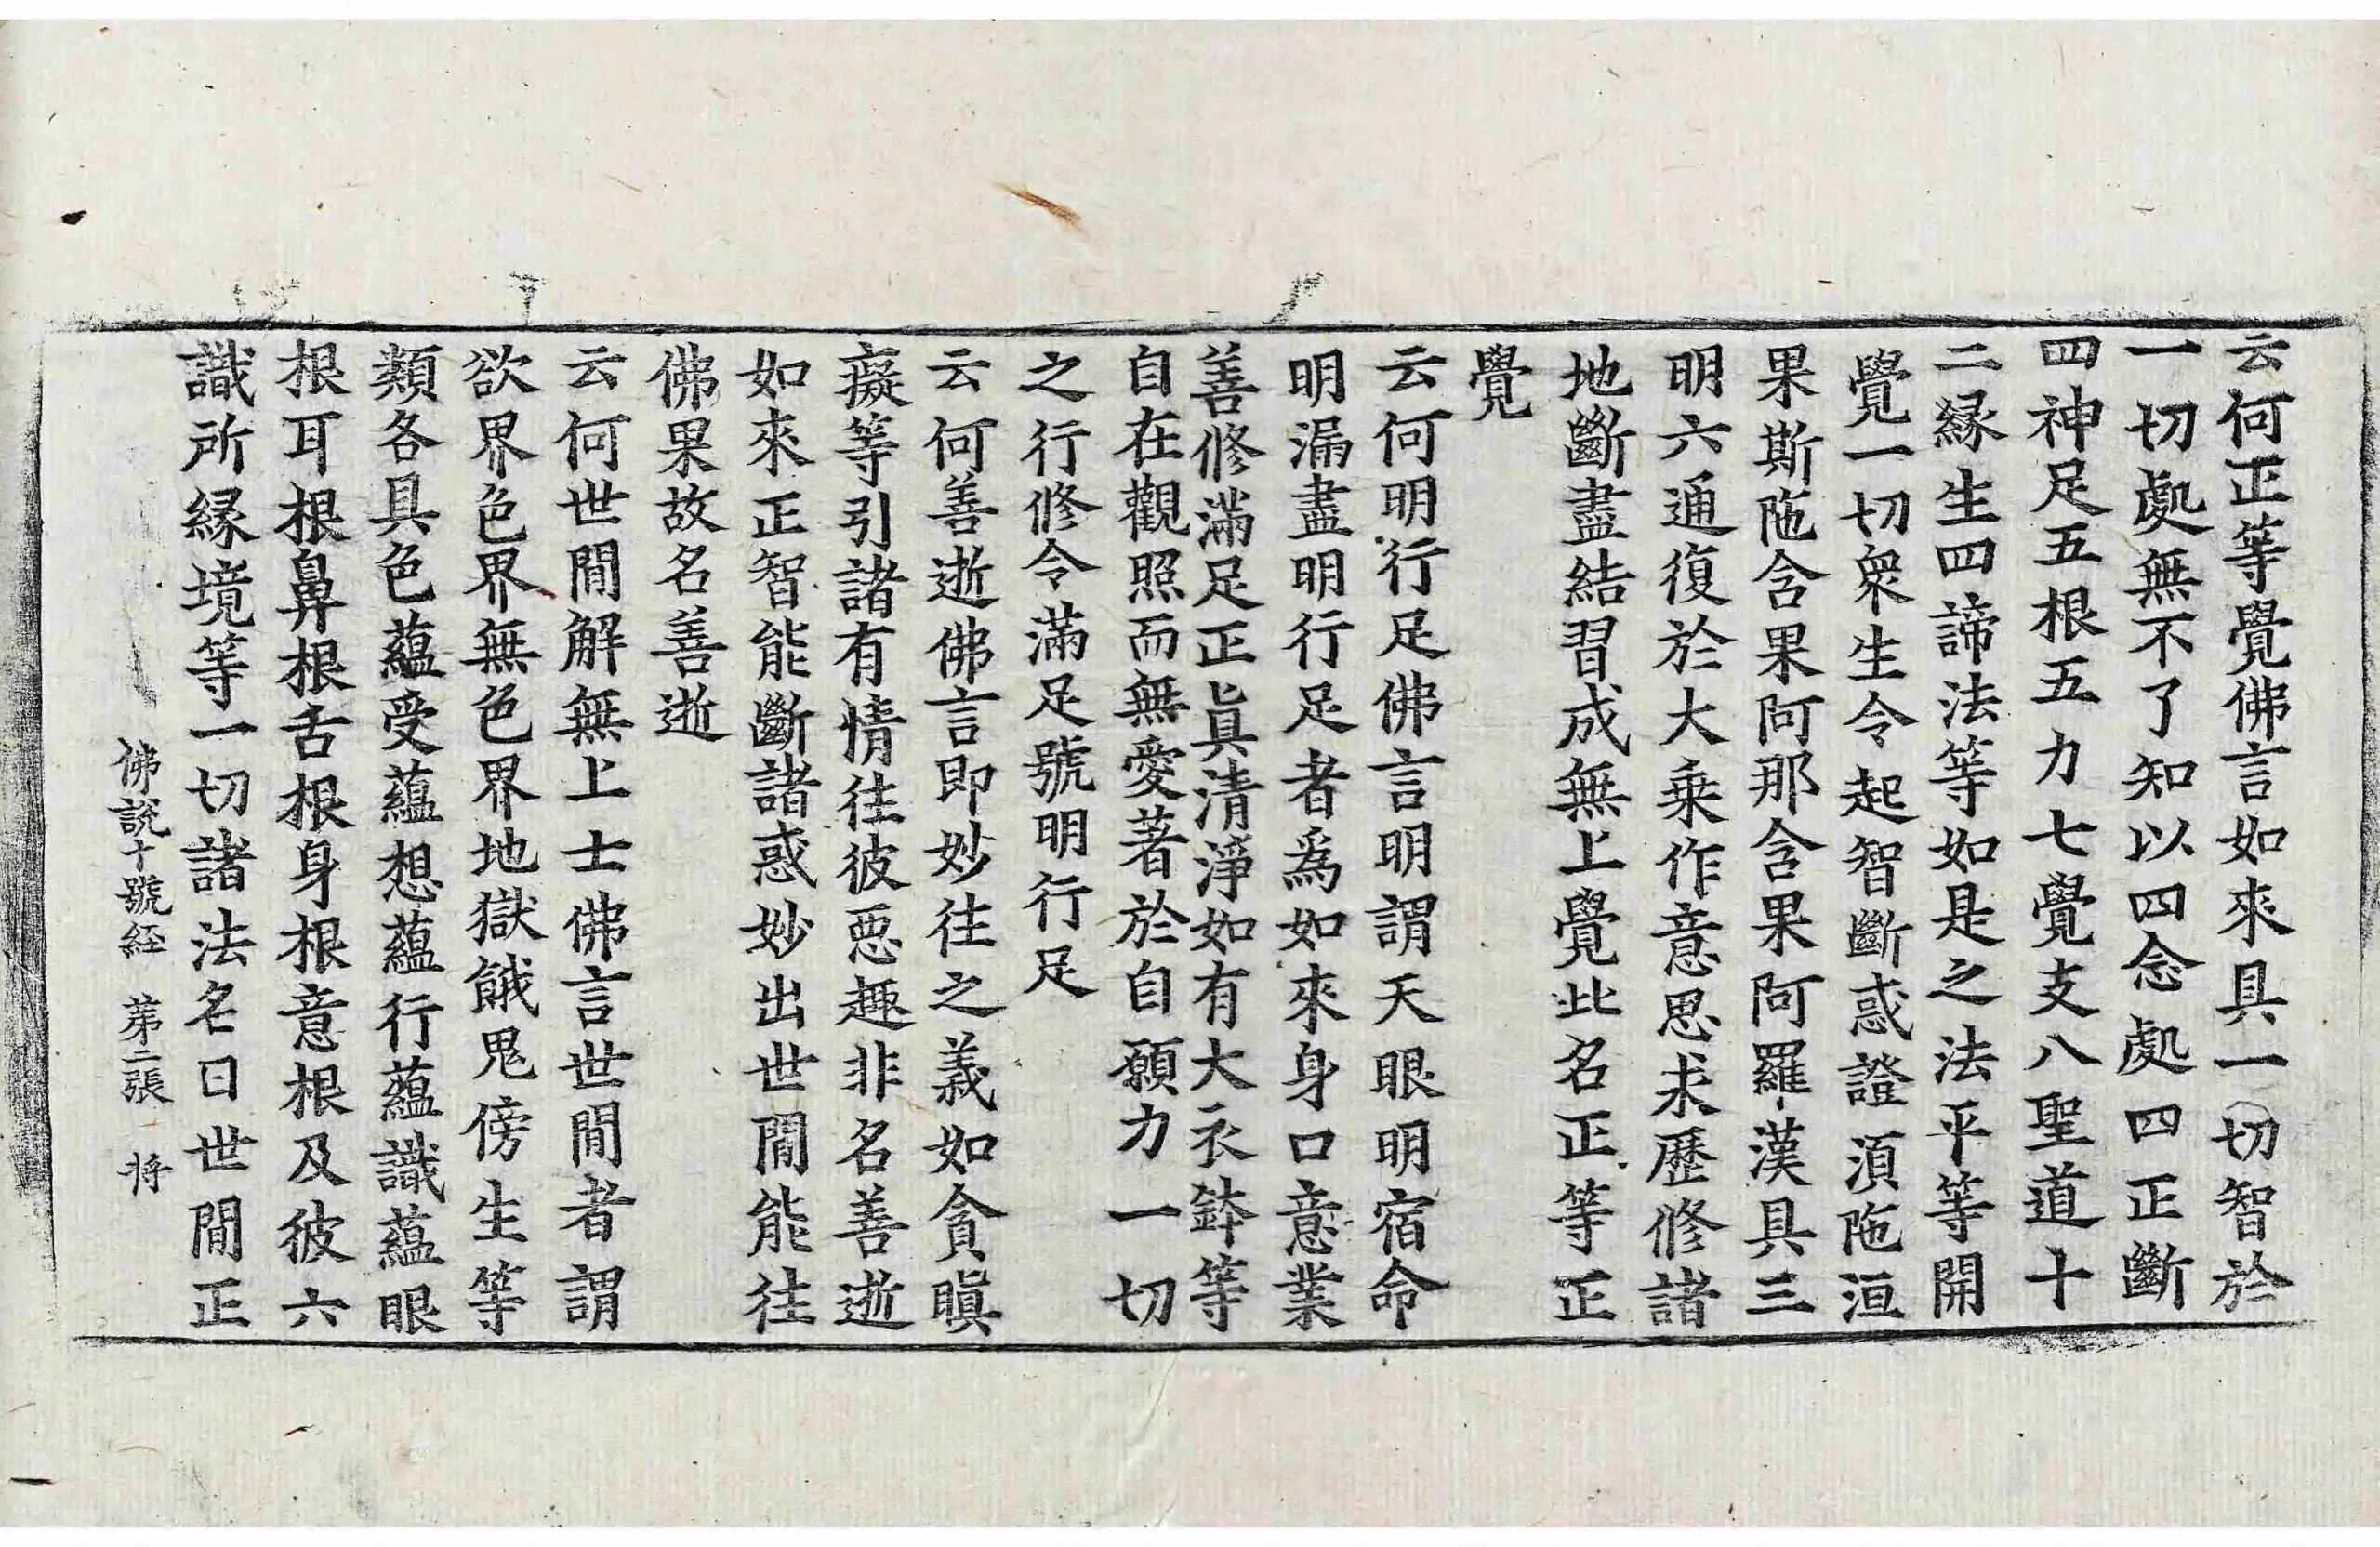 云何正等覺佛言如來具一切智於
一切處無不了知以四念處四正斷
四神足五根五力七覺支八聖道十
二縁生四諦法等如是之法平等開
覺一切衆生令起智斷惑證湏陁洹
果斯陁含果阿那含果阿羅漢具三
明六通復於大乗作意思求歷修諸
地斷盡結習成無上覺此名正等正
覺
云何明行足佛言明謂天眼明宿命
明漏盡明行足者爲如來身口意業
善修滿足正眞清淨如有大衣鉢等
自在觀照而無愛著於自願力一切
之行修令滿足號明行足
云何善逝佛言即妙往之義如貪瞋
癡等引諸有情往彼惡趣非名善逝
如來正智能斷諸惑妙出世間能往
佛果故名善逝
云何世間解無上士佛言世間者謂
欲界色界無色界地獄餓鬼傍生等
類各具色蘊受蘊想蘊行蘊識蘊眼
根耳根鼻根舌根身根意根及彼六
識所縁境等一切諸法名曰世間正
佛說十號経 苐二張 将